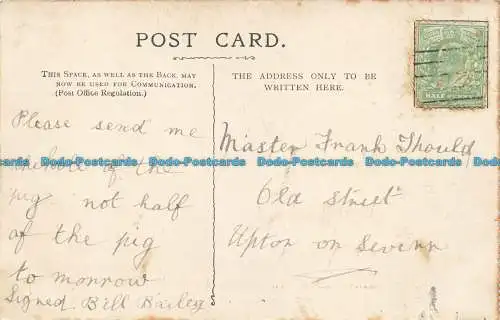 POST CARD.
THIS SPACE, AS WELL AS THE BACK, MAY
NOW BE USED FOR COMMUNICATION.
(Post Office Regulation.)
THE ADDRESS ONLY TO BE
WRITTEN HERE.
HALF
Please send me
of the
pig not half
of the pig
to monrow
Signed Bill Bailey
Master Frank Thould
Old Street
Upton on Severn
Dodo-Postcards Dodo-Postcards Dodo-Postcards Dodo-Postcards Dodo-Postcards